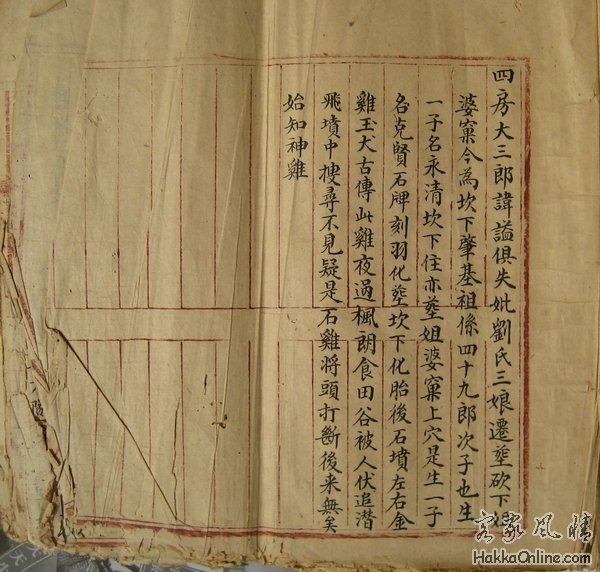 四房大三郎諱謚俱失妣劉氏三娘遷塟砍下姐
婆窠今為坎下肇基祖係四十九郎次子也生
一子名永清坎下住亦塟姐婆窠上穴是生一子
名克賢石牌刻羽化塟坎下化胎後石墳左右金
雞玉犬古傳此雞夜過楓朗食田谷被人伏追潜
飛墳中搜尋不見疑是石雞将頭打斷後来無矣
始知神雞
客家風情
HakkaOnline.com